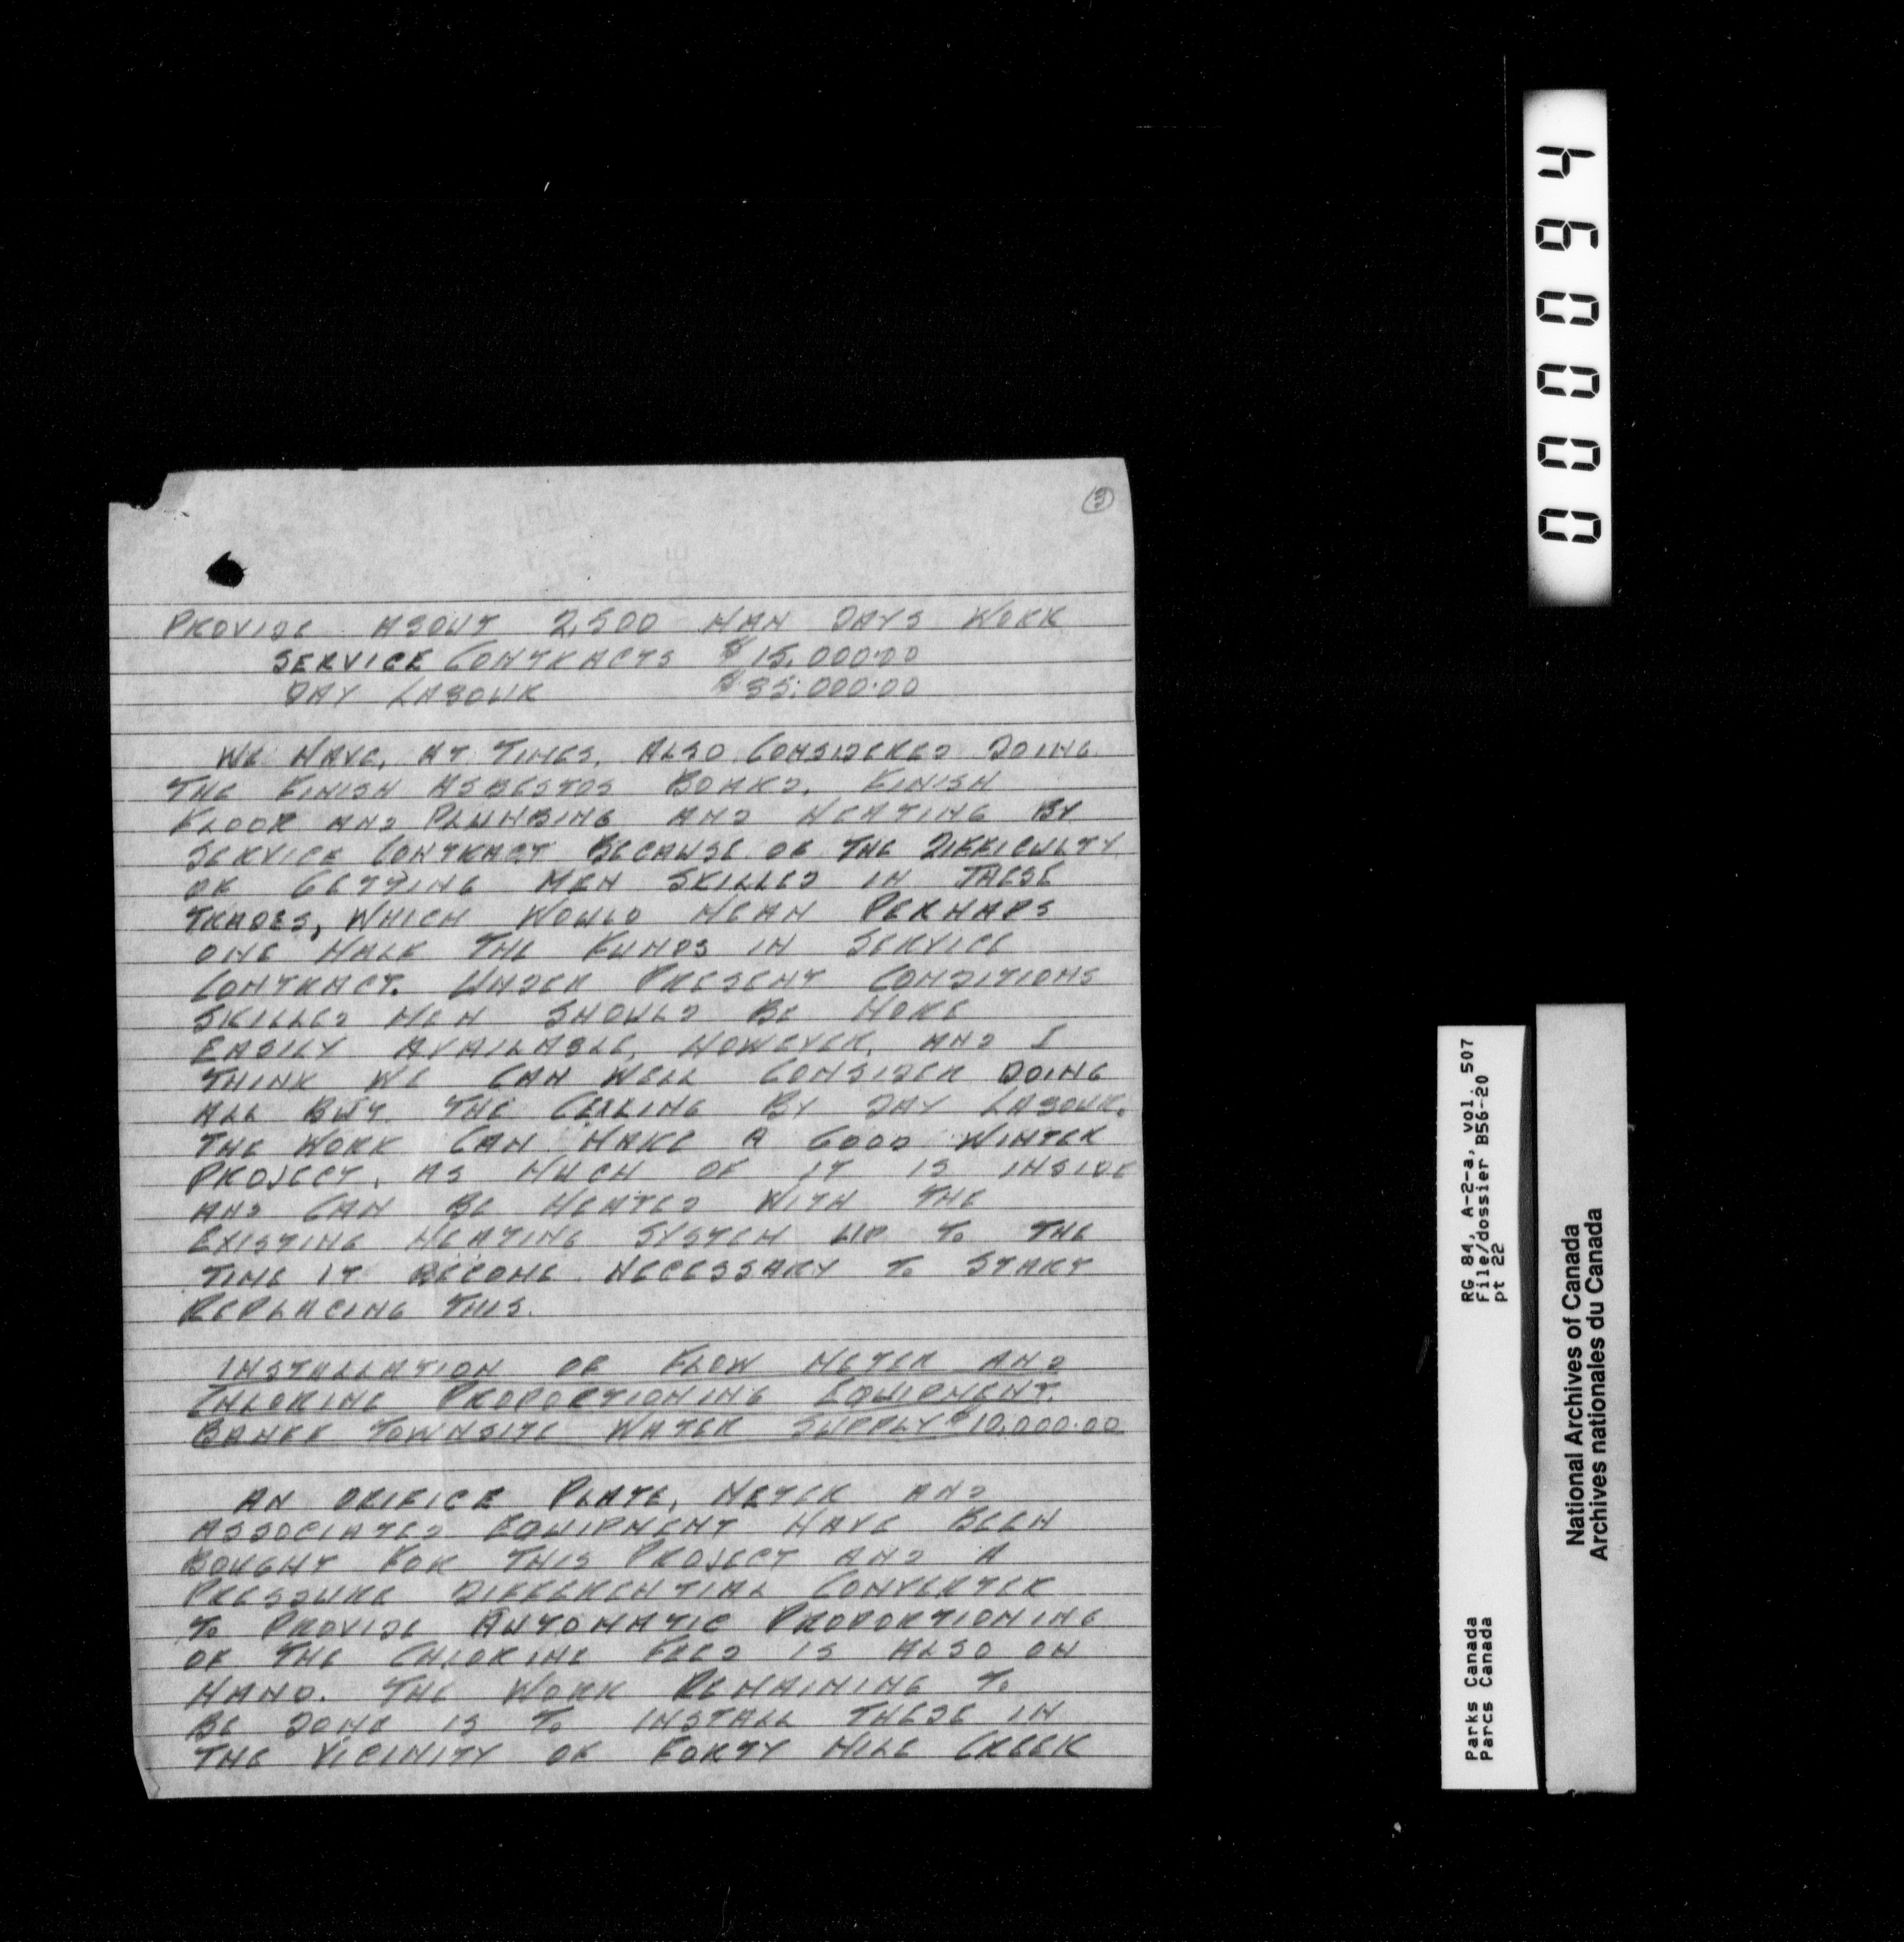 3
PROVIDE ABOUT 2,500 MAN DAYS WORK
SERVICE CONTRACTS $15,000.00
DAY LABOUR $35,000.00
WE HAVE, AT TIMES, ALSO CONSIDERED DOING
THE FINISH ASBESTOS BOARD, FINISH
FLOOR AND PLUMBING AND HEATING BY
SERVICE CONTRACT BECAUSE OF THE DIFFICULTY
OF GETTING MEN SKILLED IN THESE
TRADES, WHICH WOULD MEAN PERHAPS
ONE HALF THE FUNDS IN SERVICE
CONTRACT. UNDER PRESENT CONDITIONS
SKILLED MEN SHOULD BE MORE
EASILY AVAILABLE, HOWEVER, AND I
THINK WE CAN WELL CONSIDER DOING
ALL BUT THE CEILING BY DAY LABOUR.
THE WORK CAN MAKE A GOOD WINTER
PROJECT, AS MUCH OF IT IS INSIDE
AND CAN BE HEATED WITH THE
EXISTING HEATING SYSTEM UP TO THE
TIME IT BECOME NECESSARY TO START
REPLACING THIS.
INSTALLATION OF FLOW METER AND
CHLORINE PROPORTIONING EQUIPMENT.
BANFF TOWNSITE WATER SUPPLY $10,000.00
AN ORIFICE PLATE, METER AND
ASSOCIATED EQUIPMENT HAVE BEEN
BOUGHT FOR THIS PROJECT AND A
PRESSURE DIFFERENTIAL CONVERTER
TO PROVIDE AUTOMATIC PROPORTIONING
OF THE CHLORINE FEED IS ALSO ON
HAND. THE WORK REMAINING TO
BE DONE IS TO INSTALL THESE IN
THE VICINITY OF FORTY MILE CREEK
000094
RG 84, A-2-a, vol. 507
File/dossier B56-20
pt 22
Parks Canada
Parcs Canada
National Archives of Canada
Archives nationales du Canada